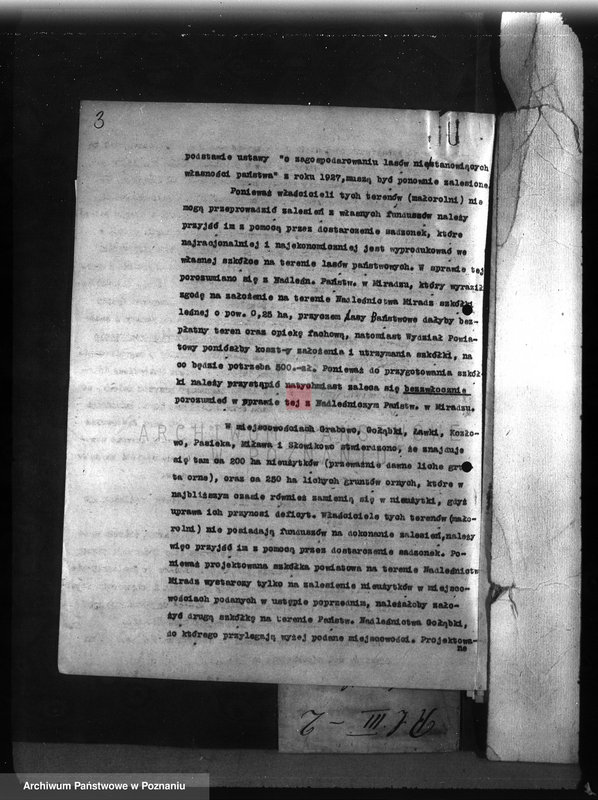 3
podstawie ustawy "o zagospodarowaniu lasów niestanowiących
własności państwa" z roku 1927, muszą być ponownie zalesione.
Ponieważ właścicieli tych terenów (małorolni) nie
mogą przeprowadzić zalesień z własnych funduszów należy
przyjść im z pomocą przez dostarczenie sadzonek, które
najracjonalniej i najekonomiczniej jest wyprodukować we
własnej szkółce na terenie lasów państwowych. W sprawie tej
porozumiano się z Nadleśn. Państw. w Miradzu, który wyraził
zgodę na założenie na terenie Nadleśnictwa Miradz szkółki
leśnej o pow. 0,25 ha, przyczem Lasy Państwowe dałyby bez-
płatny teren oraz opiekę fachową, natomiast Wydział Powia-
towy poniósłby koszt-y założenia i utrzymania szkółki, na
co będzie potrzeba 500.-zł. Ponieważ do przygotowania szkół-
ki należy przystąpić natychmiast zaleca się bezzwłocznie
porozumieć w sprawie tej z Nadleśniczym Państw. w Miradzu.
W miejscowościach Grabowo, Gołąbki, Ławki, Kozło-
wo, Pasieka, Miława i Słowikowo stwierdzono, że znajduje
się tam ca 200 ha nieużytków (przeważnie dawne liche grun
ta orne), oraz ca 250 ha lichych gruntów ornych, które w
najbliższym czasie również zamienią się w nieużytki, gdyż
uprawa ich przynosi deficyt. Właściciele tych terenów (mało-
rolni) nie posiadają funduszów na dokonanie zalesień, należy
więc przyjść im z pomocą przez dostarczenie sadzonek. Po-
nieważ projektowana szkółka powiatowa na terenie Nadleśnictw
Miradz wystarczy tylko na zalesienie nieużytków w miejsco-
wościach podanych w ustępie poprzednim, należałoby zało-
żyć drugą szkółkę na terenie Państw. Nadleśnictwa Gołąbki,
do którego przylegają wyżej podane miejscowości. Projektowa-
ne
Rl III - 2
Archiwum Państwowe w Poznaniu